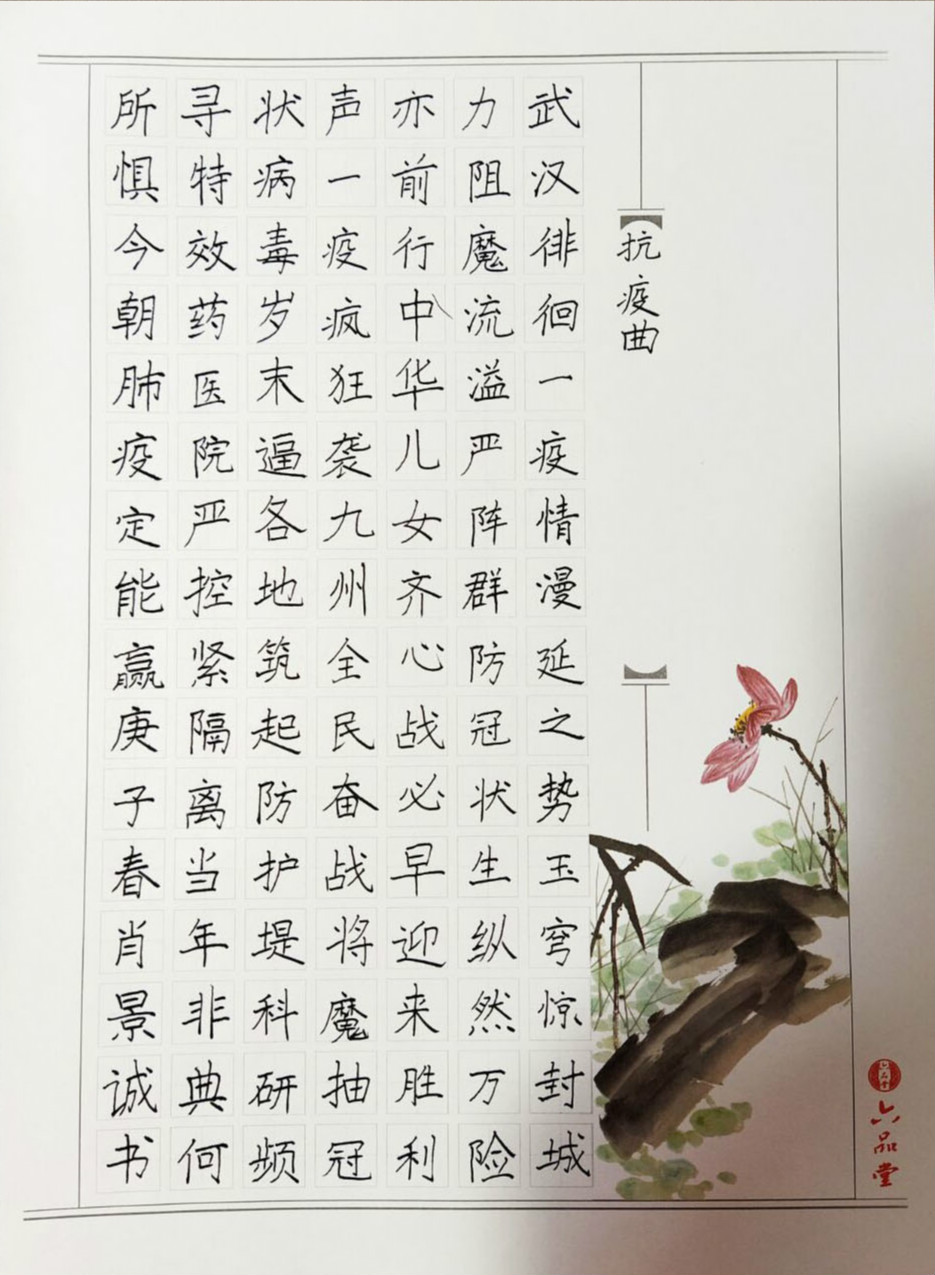 抗疫曲
武汉徘徊一疫情漫延之势玉穹惊封城
力阻魔流溢严阵群防冠状生纵然万险
亦前行中华儿女齐心战必早迎来胜利
声一疫疯狂袭九州全民奋战将魔抽冠
状病毒岁末逼各地筑起防护堤科研频
寻特效药医院严控紧隔离当年非典何
所惧今朝肺疫定能赢庚子春肖景诚书
六品堂